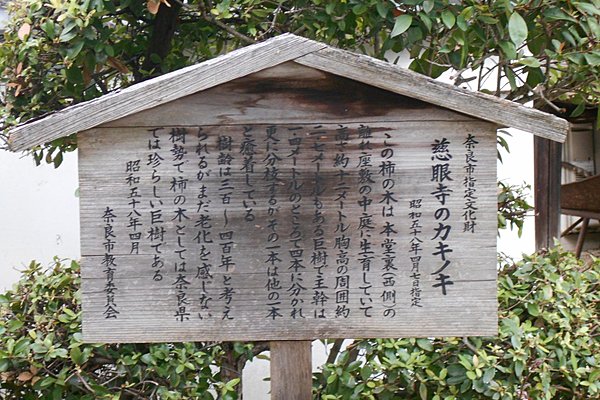 奈良市指定文化財
慈眼寺のカキノキ
昭和五十八年四月七日指定
この柿の木は本堂裏西側の
離れ座敷の中庭に生育していて
高さ約十二メートル胸高の周囲約
二・七メートルもある巨樹で主幹は
一・四メートルのところで四本に分かれ
更に分枝するがその一本は他の一本
と癒着している
樹齢は三百〜四百年と考え
られるがまだ老化を感じない
樹勢で柿の木としては奈良県
では珍らしい巨樹である
昭和五十八年四月
奈良市教育委員会